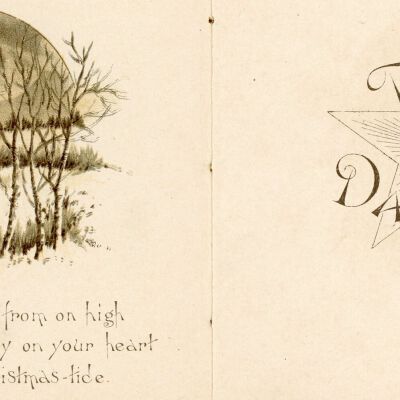 from on high
y on your heart
istmas-tide.
DA